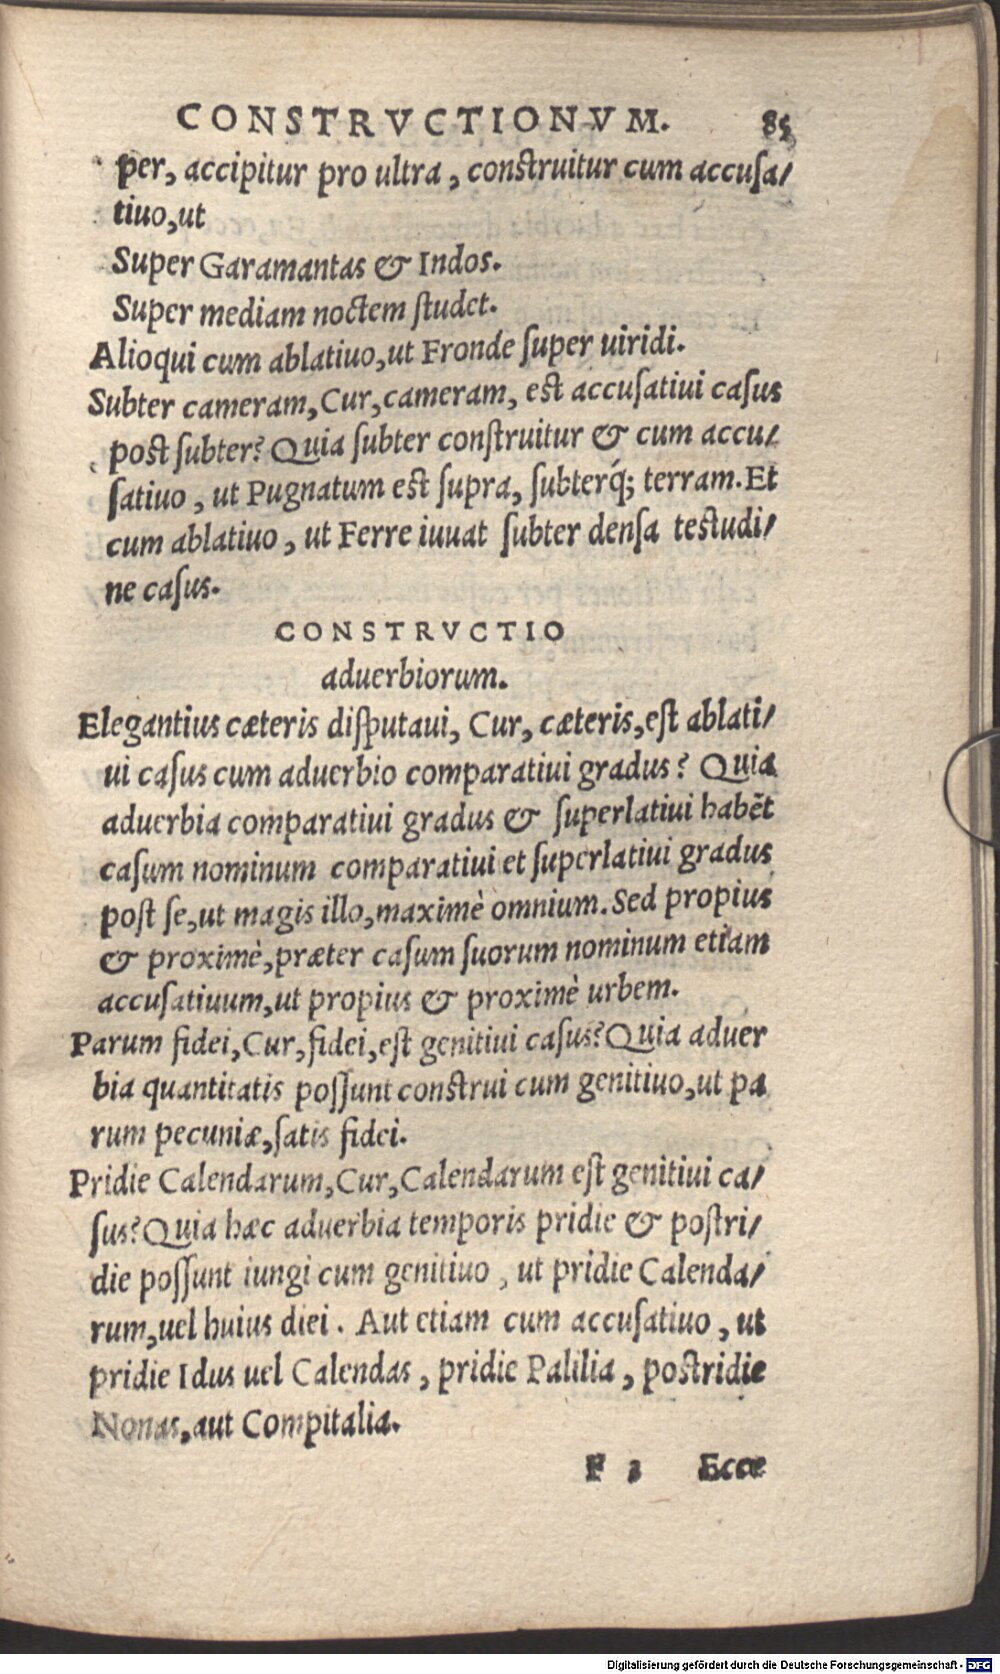 CONSTRVCTIONVM. 85
per, accipitur pro ultra, construitur cum accusa/
tiuo, ut
Super Garamantas & Indos.
Super mediam noctem ſtudet.
Alioqui cum ablatiuo, ut Fronde ſuper uiridi.
Subter cameram, Cur, cameram, est accuſatiui caſus
post ſubter? Quia ſubter conſtruitur & cum accu/
ſatiuo, ut Pugnatum est ſupra, ſubterq́; terram. Et
cum ablatiuo, ut Ferre iuuat ſubter denſa testudi/
ne caſus.
CONSTRVCTIO
aduerbiorum.
Elegantius cæteris diſputaui, Cur, cæteris, eſt ablati/
ui caſus cum aduerbio comparatiui gradus? Quia
aduerbia comparatiui gradus & ſuperlatiui habẽt
caſum nominum comparatiui et ſuperlatiui gradus
poſt ſe, ut magis illo, maximè omnium. Sed propius
& proximè, præter caſum ſuorum nominum etiam
accuſatiuum, ut propius & proximè urbem.
Parum fidei, Cur, fidei, eſt genitiui caſus? Quia aduer
bia quantitatis poſſunt construi cum genitiuo, ut pa
rum pecuniæ, ſatis fidei.
Pridie Calendarum, Cur, Calendarum eſt genitiui ca/
ſus? Quia hæc aduerbia temporis pridie & poſtri/
die poſſunt iungi cum genitiuo, ut pridie Calenda/
rum, uel huius diei. Aut etiam cum accuſatiuo, ut
pridie Idus uel Calendas, pridie Palilia, postridie
Nonas, aut Compitalia.
F 3 Ecce
Digitalisierung gefördert durch die Deutsche Forschungsgemeinschaft - DFG